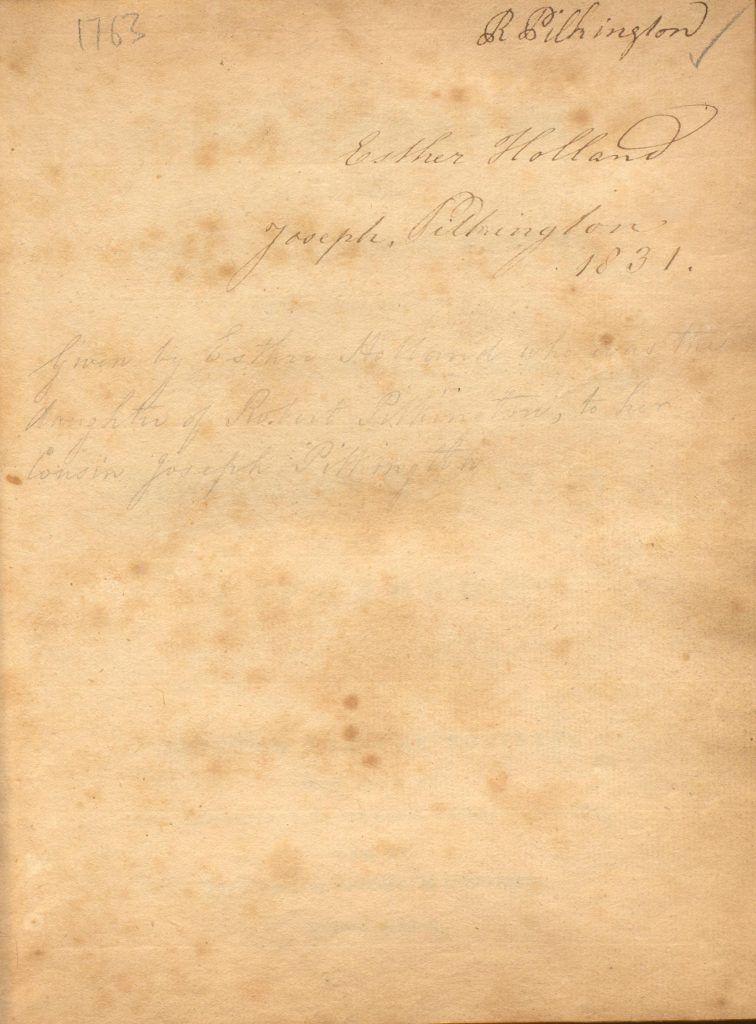 1763
R Pilkington
Esther Holland
Joseph, Pilkington
1831.
Given by Esther Holland who was the
daughter of Robert Pilkington, to her
Cousin Joseph Pilkington